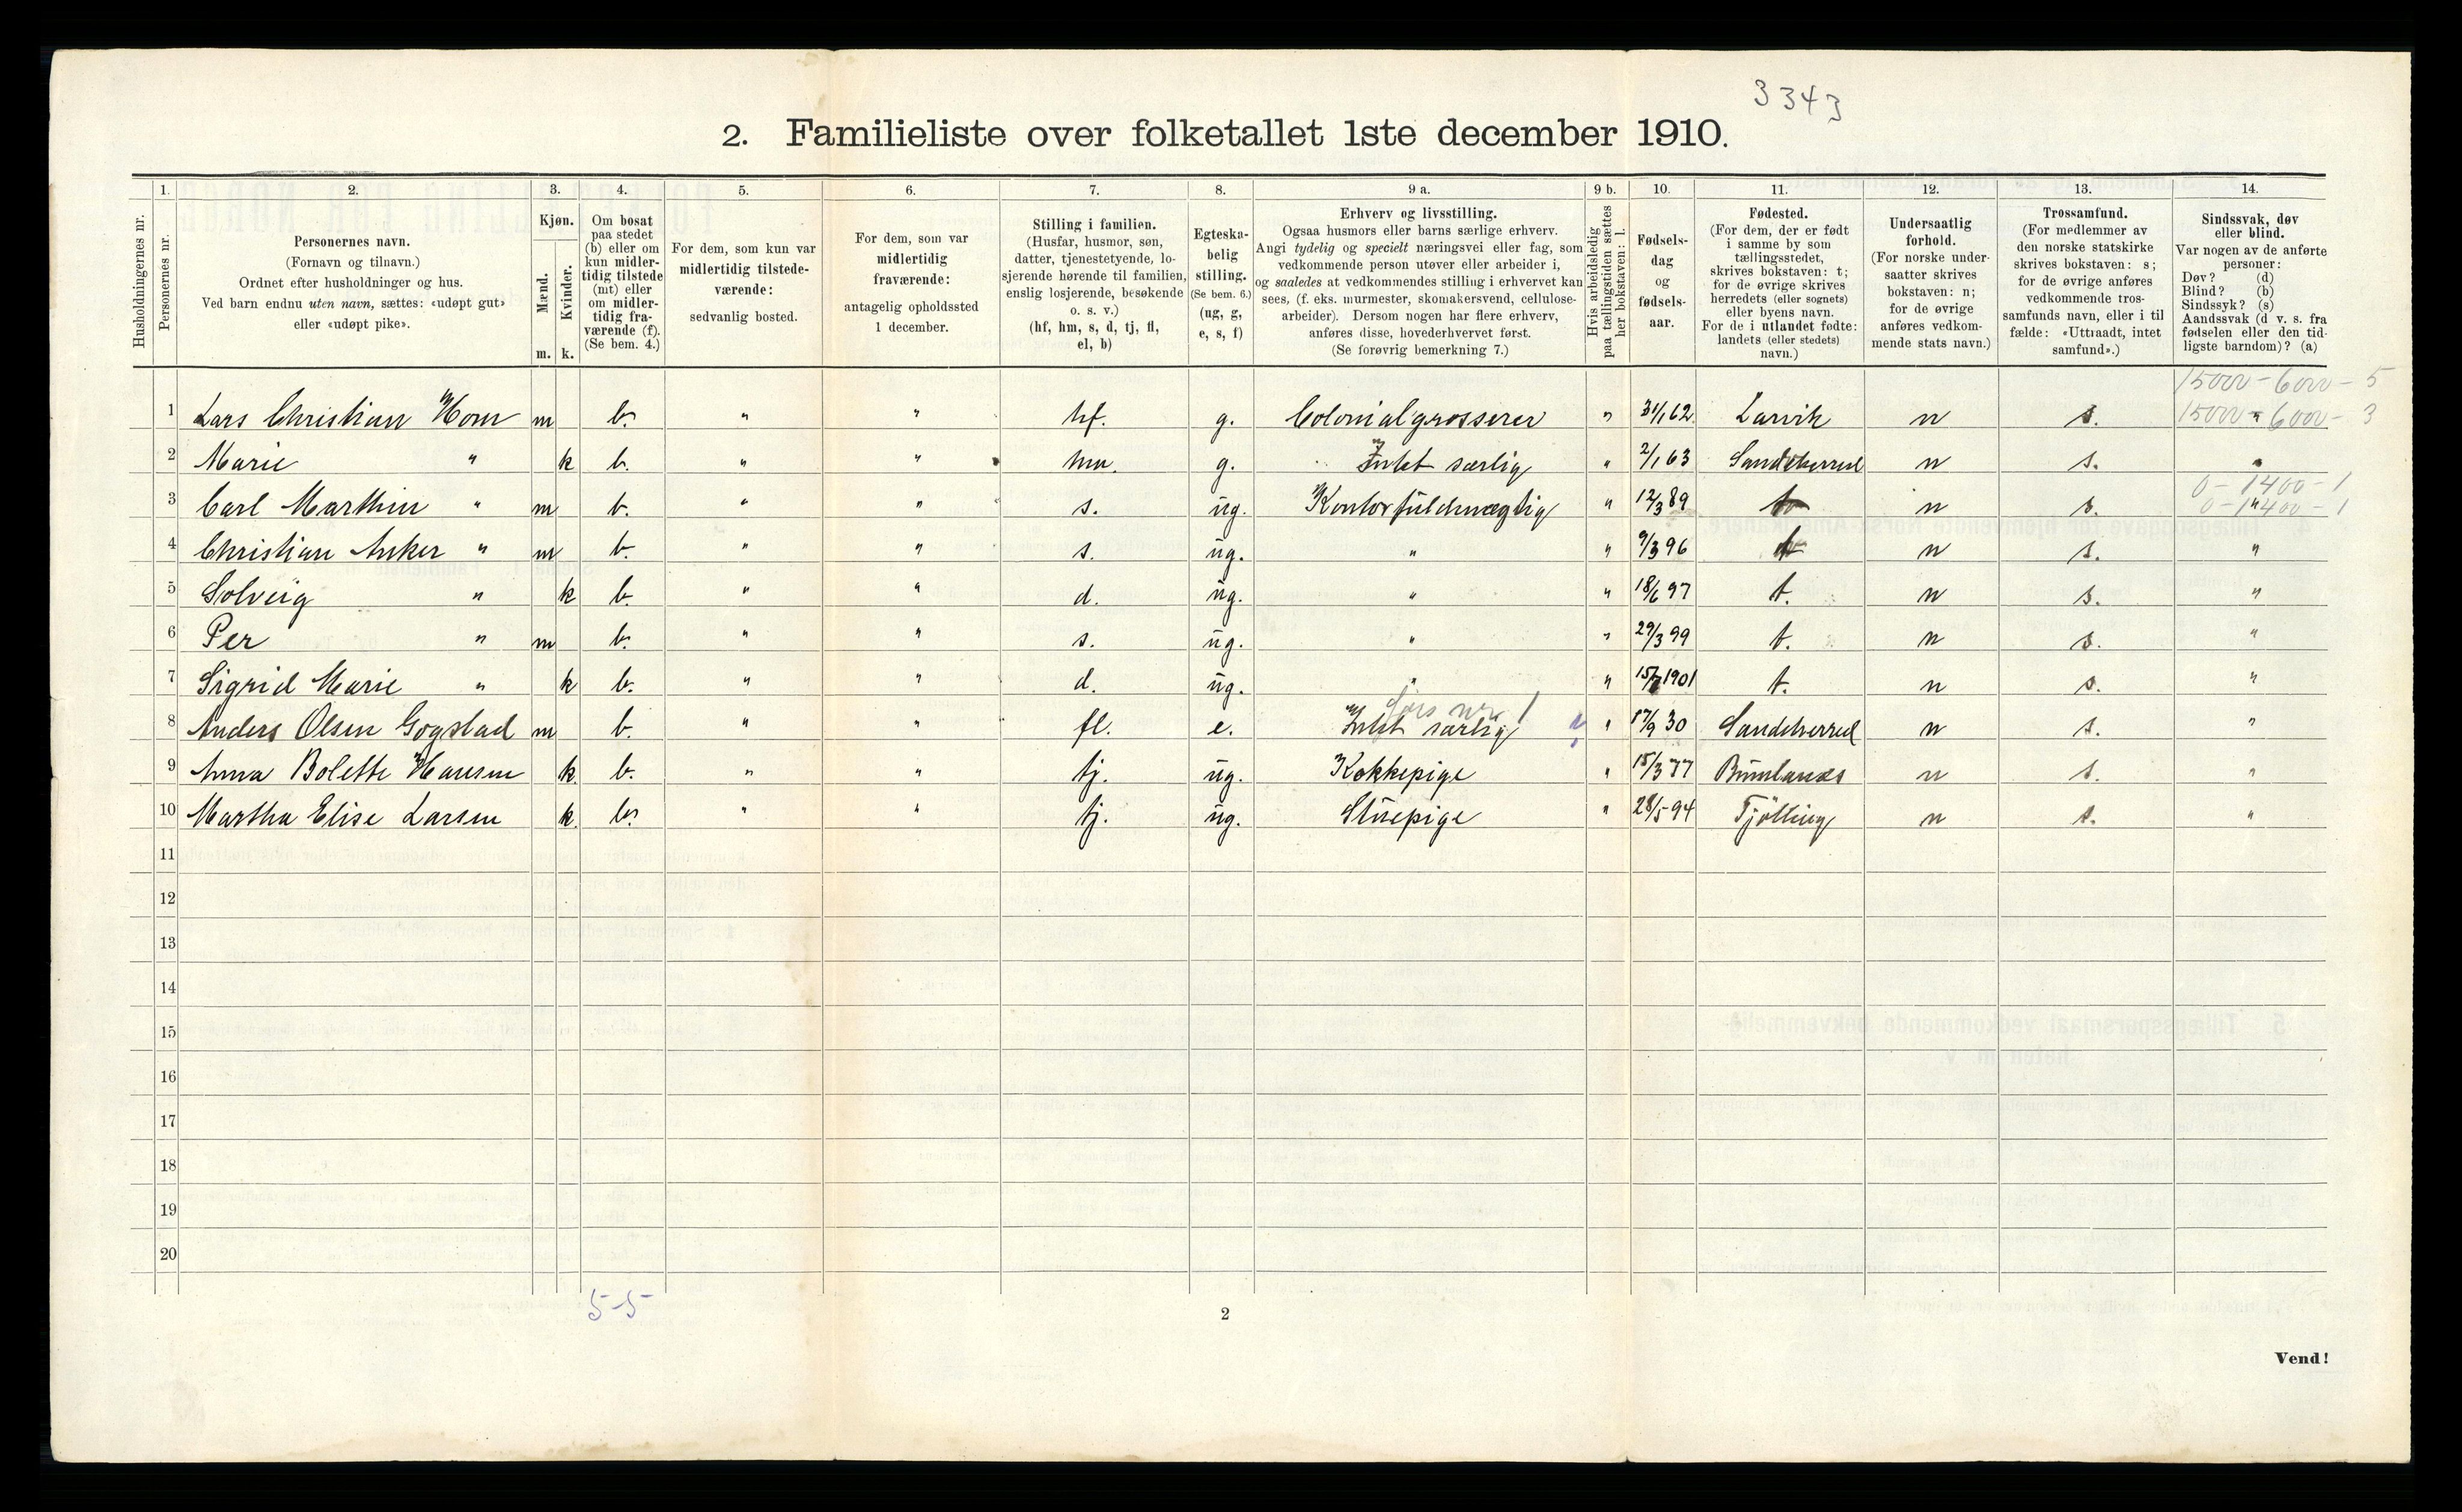 3343
2. Familieliste over folketallet 1ste december 1910.
Husholdningernes nr.
1. Personernes nr.
2. Personernes navn. (Fornavn og tilnavn.) Ordnet efter husholdninger og hus. Ved barn endnu uten navn, sættes: «udøpt gut» eller «udøpt pike».
3. Kjøn. Mænd. m. Kvinder. k.
4. Om bosat paa stedet (b) eller om kun midlertidig tilstede (mt) eller om midlertidig fraværende (f). (Se bem. 4.)
5. For dem, som kun var midlertidig tilstedeværende: sedvanlig bosted.
6. For dem, som var midlertidig fraværende: antagelig opholdssted 1 december.
7. Stilling i familien. (Husfar, husmor, søn, datter, tjenestetyende, losjerende hørende til familien, enslig losjerende, besøkende o. s. v.) (hf, hm, s, d, tj, fl, el, b)
8. Egteskabelig stilling. (Se bem. 6.) (ug, g, e, s, f)
9 a. Erhverv og livsstilling. Ogsaa husmors eller barns særlige erhverv. Angi tydelig og specielt næringsvei eller fag, som vedkommende person utøver eller arbeider i, og saaledes at vedkommendes stilling i erhvervet kan sees, (f. eks. murmester, skomakersvend, cellulosearbeider). Dersom nogen har flere erhverv, anføres disse, hovederhvervet først. (Se forøvrig bemerkning 7.)
9 b. Hvis arbeidsledig paa tællingstiden sættes her bokstaven: l.
10. Fødselsdag og fødselsaar.
11. Fødested. (For dem, der er født i samme by som tællingsstedet, skrives bokstaven: t; for de øvrige skrives herredets (eller sognets) eller byens navn. For de i utlandet fødte: landets (eller stedets) navn.)
12. Undersaatlig forhold. (For norske undersaatter skrives bokstaven: n; for de øvrige anføres vedkommende stats navn.)
13. Trossamfund. (For medlemmer av den norske statskirke skrives bokstaven: s; for de øvrige anføres vedkommende trossamfunds navn, eller i tilfælde: «Uttraadt, intet samfund».)
14. Sindssvak, døv eller blind. Var nogen av de anførte personer: Døv? (d) Blind? (b) Sindssyk? (s) Aandssvak (d v. s. fra fødselen eller den tidligste barndom)? (a)
15000 - 6000 - 5
1 Lars Christian Horn m b. " " hf. g. Colonialgrosserer " 31/1 62 Larvik n s. " 15000 - 6000 - 3
2 Marie " k b. " " hm. g. Intet særlig " 2/1 63 Sandeherred n s. "
0 - 1400 - 1
3 Carl Marthin " m b. " " s. ug. Kontorfuldmægtig " 12/3 89 t n s. " 0 - 1400 - 1
4 Christian Anker " m b. " " s. ug. " " 9/3 96 t n s. "
5 Solveig " k b. " " d. ug. " " 18/6 97 t. n s. "
6 Per " m b. " " s. ug. " " 29/3 99 t. n s. "
7 Sigrid Marie " k b. " " d. ug. " " 15/7 1901 t. n s. "
8 Anders Olsen Gogstad m b. " " fl. e. Intet særlig " 17/9 30 Sandeherred n s. "
9 Anna Bolette Hansen k. b. " " tj. ug. Kokkepige " 15/3 77 Brunlanæs n s. "
10 Martha Elise Larsen k. b. " " tj. ug. Stuepige " 28/5 94 Tjölling n s. "
11
12
13
14
15
16
17
18
19
20
5-5
2
Vend!